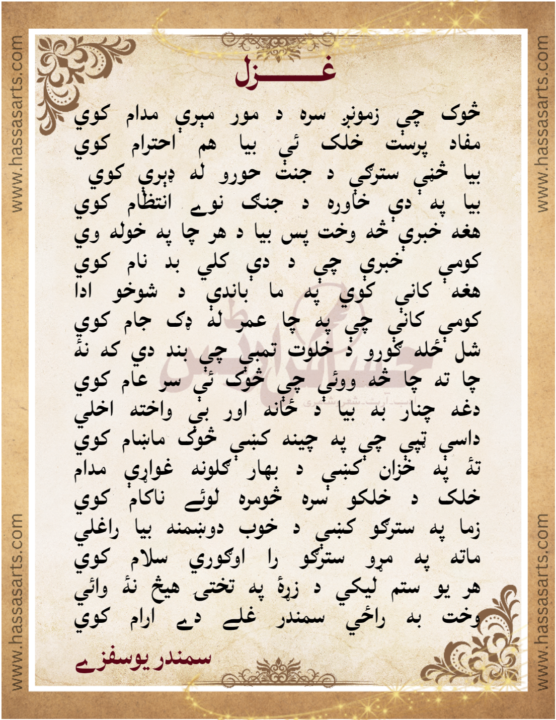 غـــــزل
څوک چې زمونږ سره د مور مېرې مدام کوي
مفاد پرست خلک ئې بيا هم احترام کوي
بيا څڼې سترګې د جنت حورو له ډېرې کوي
بيا په دې خاوره د جنګ نوے انتظام کوي
هغه خبرې څه وخت پس بيا د هر چا په خوله وي
کومې خبرې چې د دې کلي بد نام کوي
هغه کانې کوي په ما باندې د شوخو ادا
کومې کانې چې په چا عمر له ډک جام کوي
شل ځله ګورو د خلوت تمبې چې بند دي که نۀ
چا ته چا څه ووئې چې څوک ئې سر عام کوي
دغه چنار به بيا د ځانه اور بې واخته اخلي
داسې ټپې چې په چينه کښې څوک ماښام کوي
تۀ په خزان کښې د بهار ګلونه غواړې مدام
خلک د خلکو سره څومره لوئے ناکام کوي
زما په سترګو کښې د خوب دوښمنه بيا راغلي
ماته په مړو سترګو را اوګوري سلام کوي
هر يو ستم ليکي د زړۀ په تختۍ هيڅ نۀ وائي
وخت به راځي سمندر غلے دے ارام کوي
سمندر يوسفزے
www.hassasarts.com
www.hassasarts.com
www.hassasarts.com
www.hassasarts.com